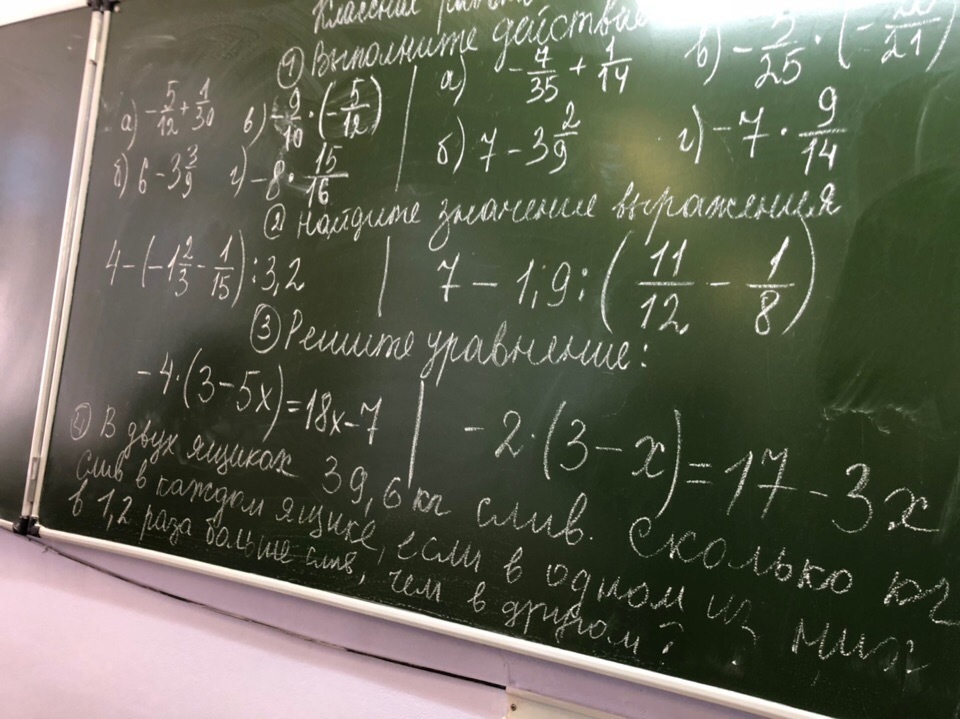 Классная работа
① Выполните действие
а) -5/12 + 1/30   в) -9/10 · (-5/12) | а) -4/35 + 1/14   в) - /25 · (- /21)
б) 6 - 3 3/9   г) -8 · 15/16 | б) 7 - 3 2/9   г) -7 · 9/14
② Найдите значение выражения
4 - (-1 2/3 - 1/15) : 3,2 | 7 - 1,9 : (11/12 - 1/8)
③ Решите уравнение:
-4·(3-5x)=18x-7 | -2·(3-x)=17-3x
④ В двух ящиках 39,6 кг слив. Сколько кг
слив в каждом ящике, если в одном из них
в 1,2 раза больше слив, чем в другом?